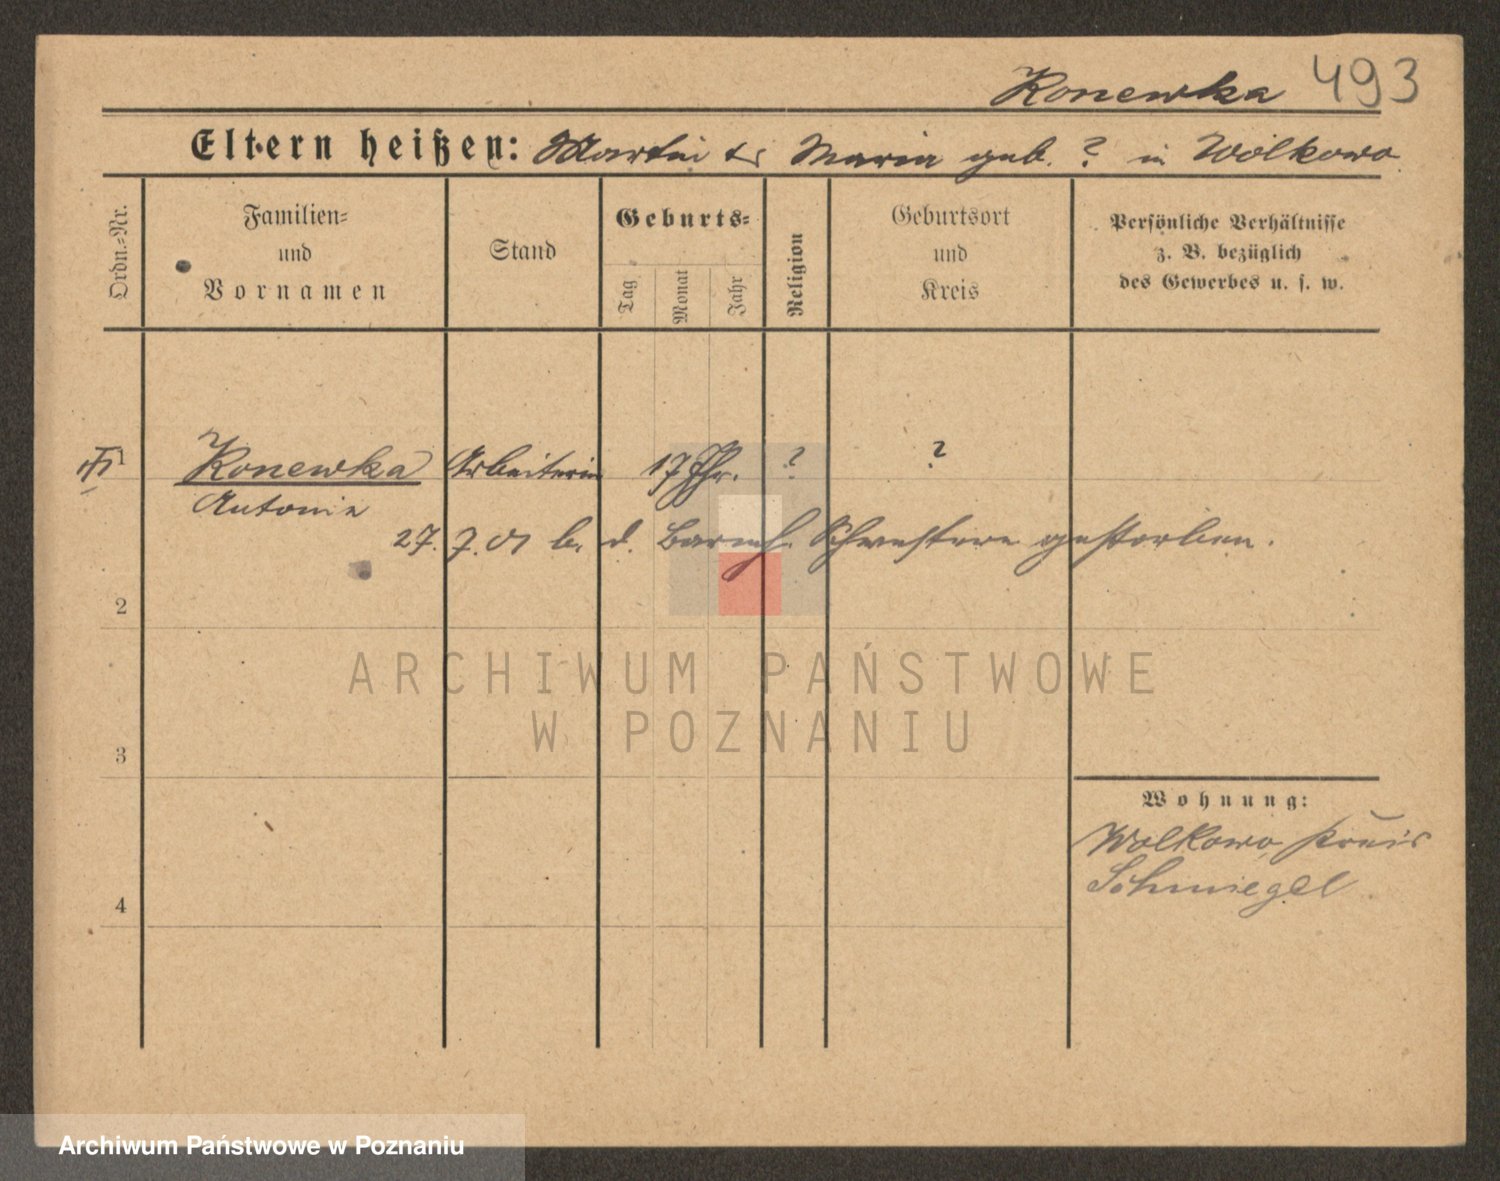 Konewka 493
Eltern heißen: Martin & Maria geb. ? in Wolkowo
Ordn.-Nr.
Familien-
und
Vornamen
Stand
Geburts-
Tag
Monat
Jahr
Religion
Geburtsort
und
Kreis
Persönliche Verhältnisse
z. B. bezüglich
des Gewerbes u. s. w.
1 Konewka Arbeiterin 17 Jhr. ? ?
Antonie
27. 7. 01 b. d. Barmh. Schwestern gestorben.
2
ARCHIWUM PAŃSTWOWE
W POZNANIU
3
Wohnung:
Wolkowo, Kreis
Schmiegel
4
Archiwum Państwowe w Poznaniu